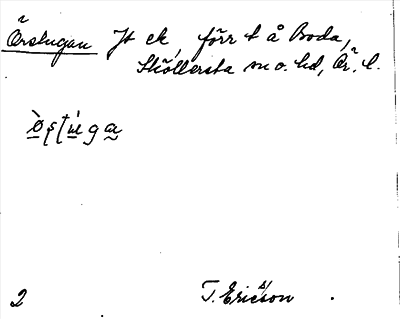 Örstugan Jt ek förr t å Boda,
Sköllersta sn o. hd, Ör. l.
ö̀ʂt́uga
2 T. Ericsson